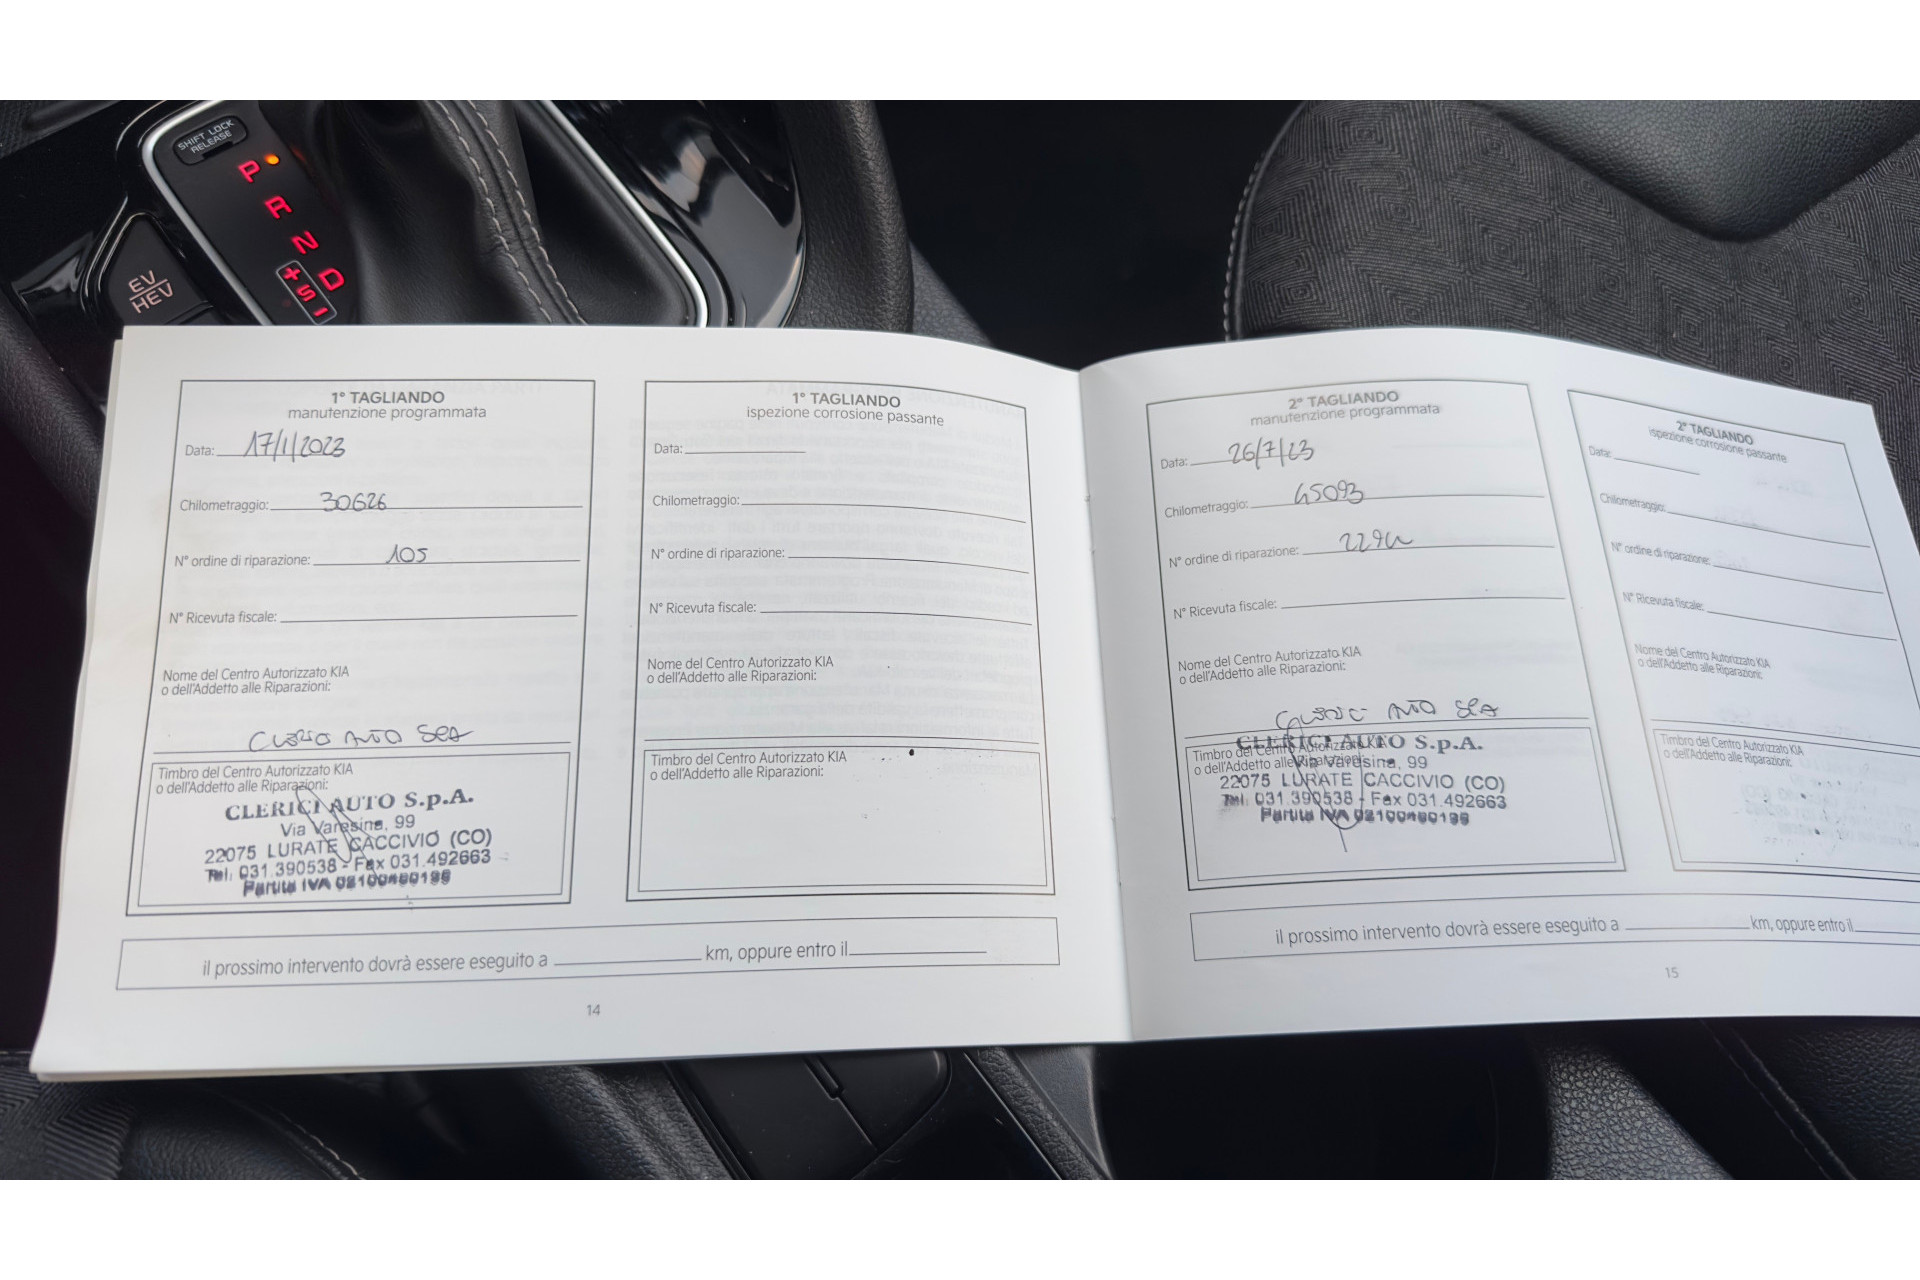 SHIFT LOCK
RELEASE
P
R
N
D
+
S
-
EV
HEV
1° TAGLIANDO
manutenzione programmata
Data: 17/1/2023
Chilometraggio: 30626
N° ordine di riparazione: 105
N° Ricevuta fiscale:
Nome del Centro Autorizzato KIA
o dell'Addetto alle Riparazioni:
AUTO SPA
Timbro del Centro Autorizzato KIA
o dell'Addetto alle Riparazioni:
CLERICI AUTO S.p.A.
Via Varesina, 99
22075 LURATE CACCIVIO (CO)
Tel. 031.390538 - Fax 031.492663
Partita IVA
1° TAGLIANDO
ispezione corrosione passante
Data:
Chilometraggio:
N° ordine di riparazione:
N° Ricevuta fiscale:
Nome del Centro Autorizzato KIA
o dell'Addetto alle Riparazioni:
Timbro del Centro Autorizzato KIA
o dell'Addetto alle Riparazioni:
il prossimo intervento dovrà essere eseguito a km, oppure entro il
14
2° TAGLIANDO
manutenzione programmata
Data: 26/7/23
Chilometraggio: 45093
N° ordine di riparazione:
N° Ricevuta fiscale:
Nome del Centro Autorizzato KIA
o dell'Addetto alle Riparazioni:
AUTO SPA
Timbro del Centro Autorizzato KIA
o dell'Addetto alle Riparazioni:
CLERICI AUTO S.p.A.
Via Varesina, 99
22075 LURATE CACCIVIO (CO)
Tel. 031.390538 - Fax 031.492663
Partita IVA
2° TAGLIANDO
ispezione corrosione passante
Data:
Chilometraggio:
N° ordine di riparazione:
N° Ricevuta fiscale:
Nome del Centro Autorizzato KIA
o dell'Addetto alle Riparazioni:
Timbro del Centro Autorizzato KIA
o dell'Addetto alle Riparazioni:
il prossimo intervento dovrà essere eseguito a km, oppure entro il
15